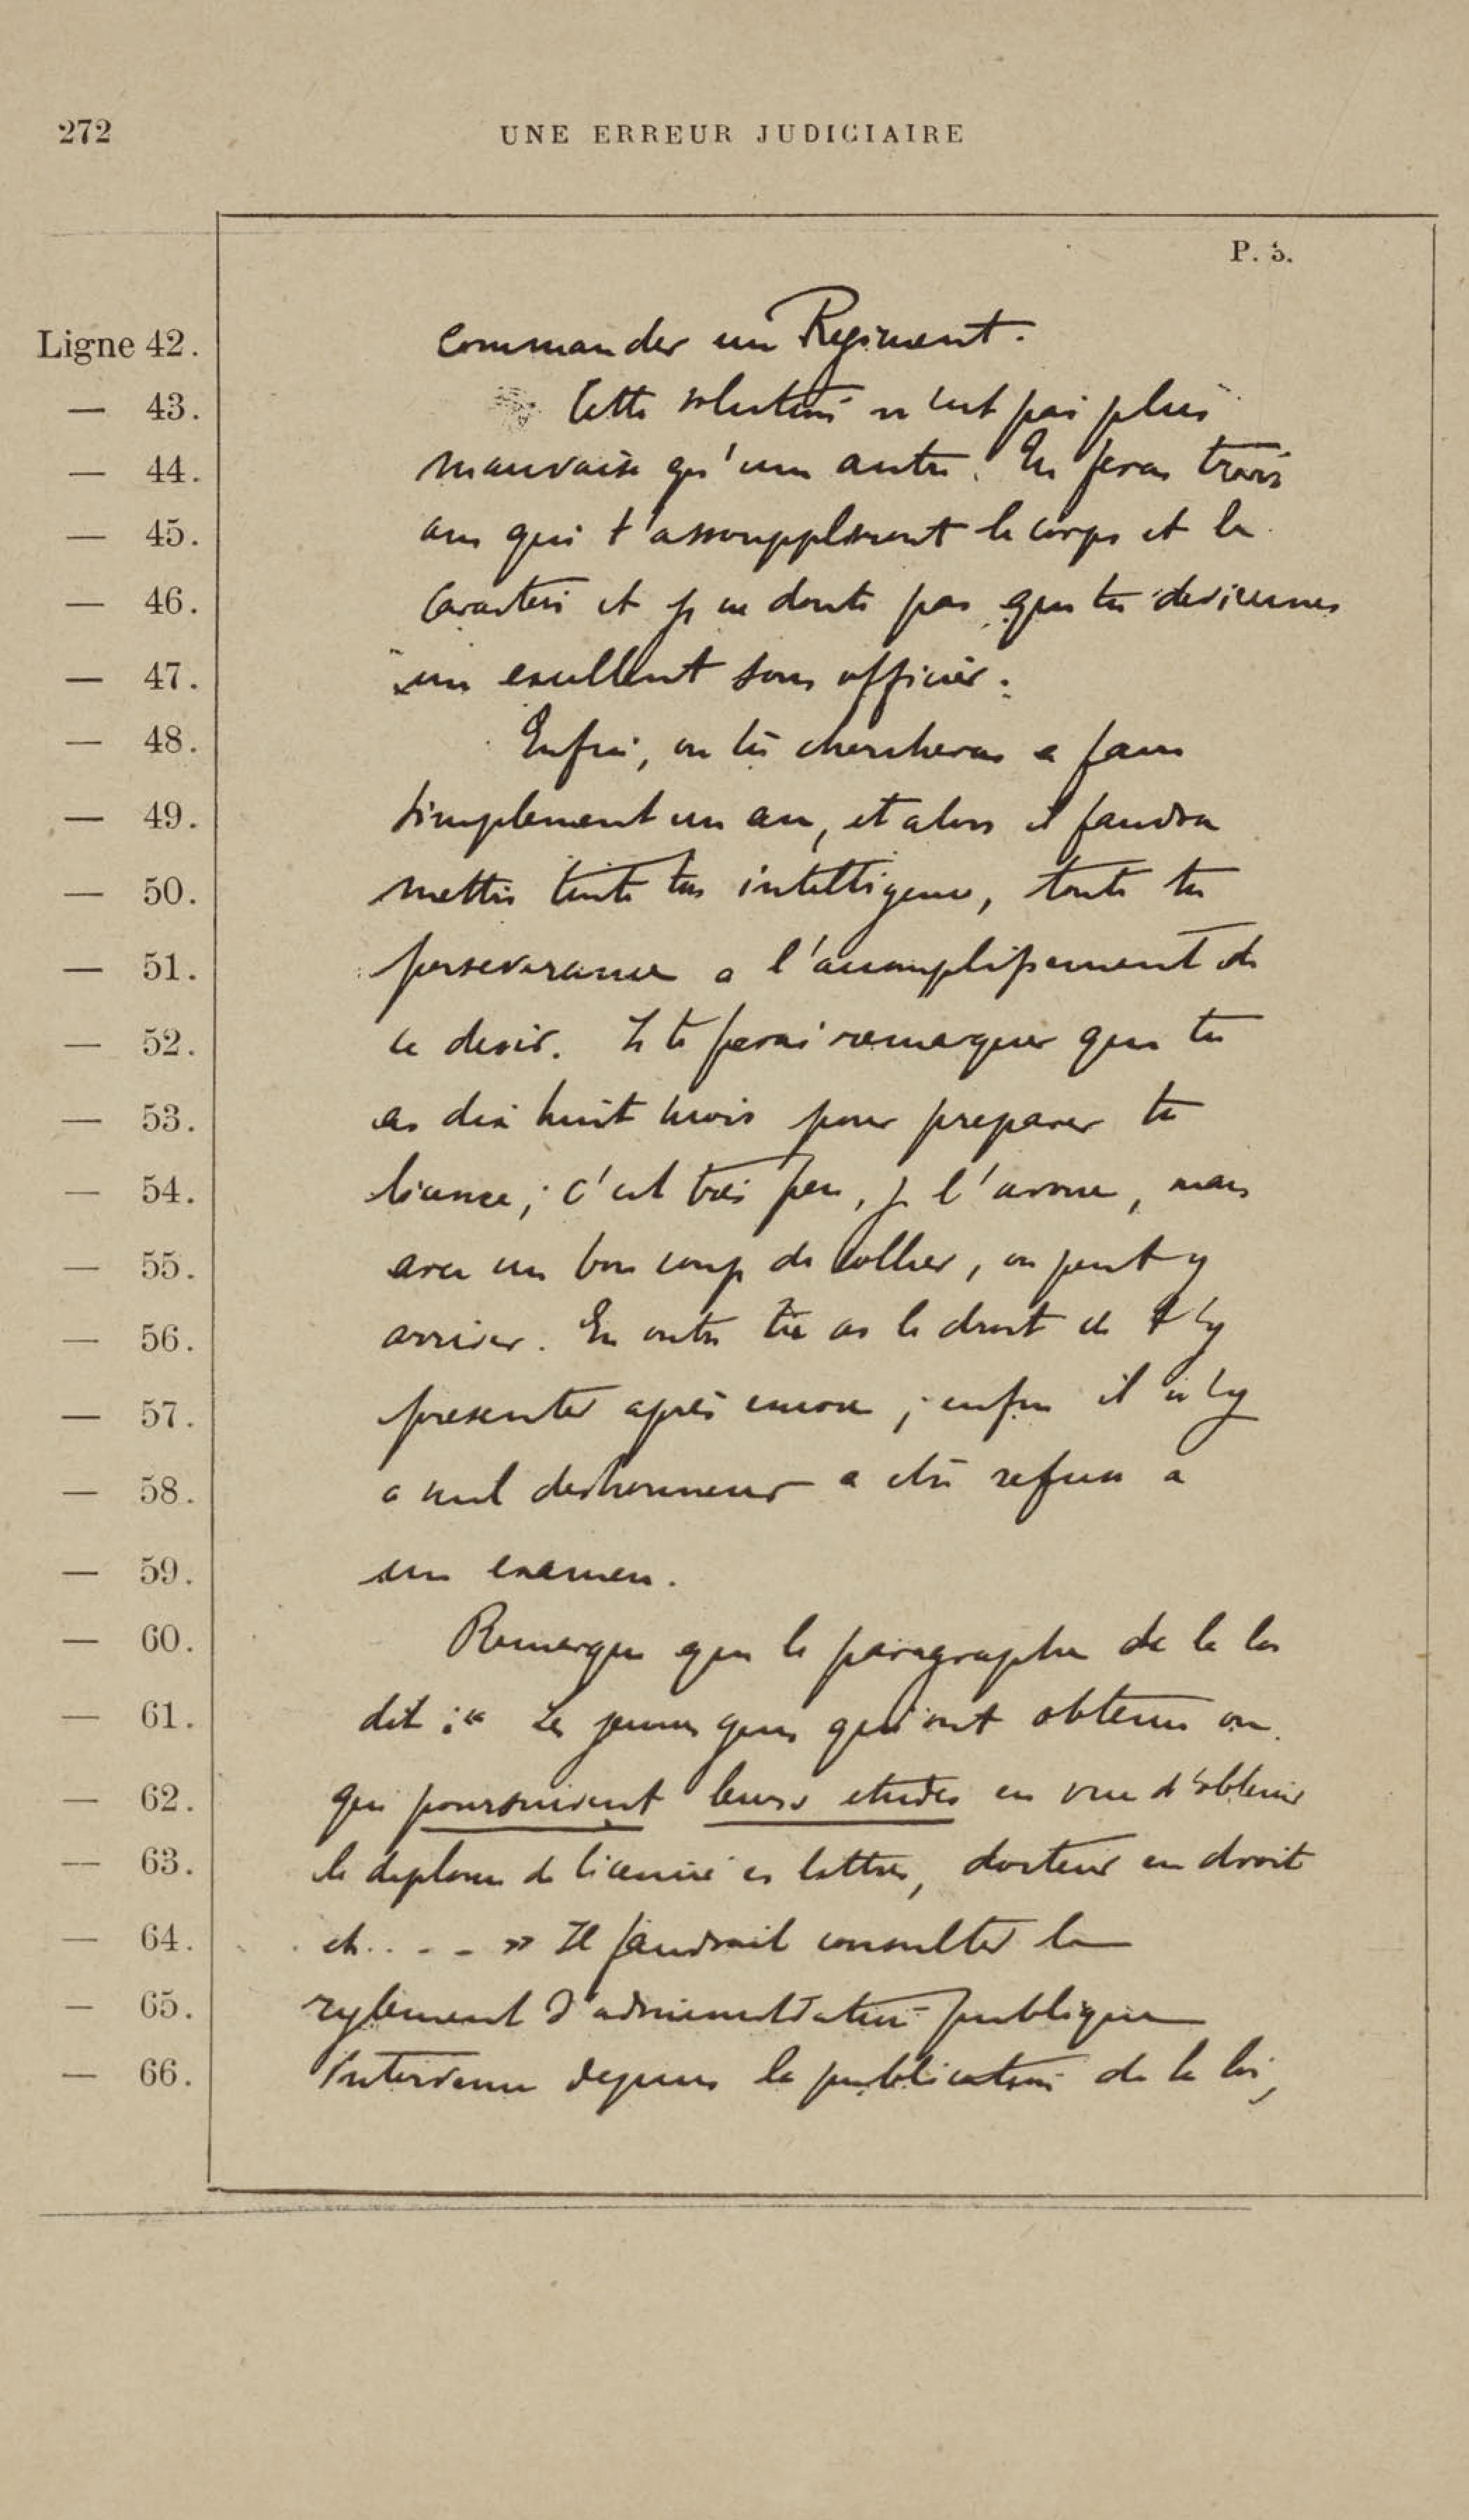 272
UNE ERREUR JUDICIAIRE
P. 5.
Ligne 42. commander un Regiment.
— 43. Cette solution n'est pas plus
— 44. mauvaise qu'une autre. Tu feras trois
— 45. ans qui t'assoupliront le corps et le
— 46. caractere et je ne doute pas que tu deviennes
— 47. un excellent sous officier.
— 48. Enfin, ou tu chercheras a faire
— 49. simplement un an, et alors il faudra
— 50. mettre toute ton intelligence, toute ta
— 51. perseverance a l'accomplissement de
— 52. ce desir. Je te ferai remarquer que tu
— 53. as dix huit mois pour preparer ta
— 54. licence; c'est très peu, je l'avoue, mais
— 55. avec un bon coup de collier, on peut y
— 56. arriver. En outre tu as le droit de t'y
— 57. presenter après encore; enfin il n'y
— 58. a nul deshonneur a etre refusé a
— 59. un examen.
— 60. Remarque que le paragraphe de la loi
— 61. dit : " Les jeunes gens qui ont obtenu ou
— 62. qui poursuivent leurs etudes en vue d'obtenir
— 63. le diplome de licencié es lettres, docteur en droit
— 64. etc.... » Il faudrait consulter le
— 65. reglement d'administration publique
— 66. intervenu depuis la publication de la loi,